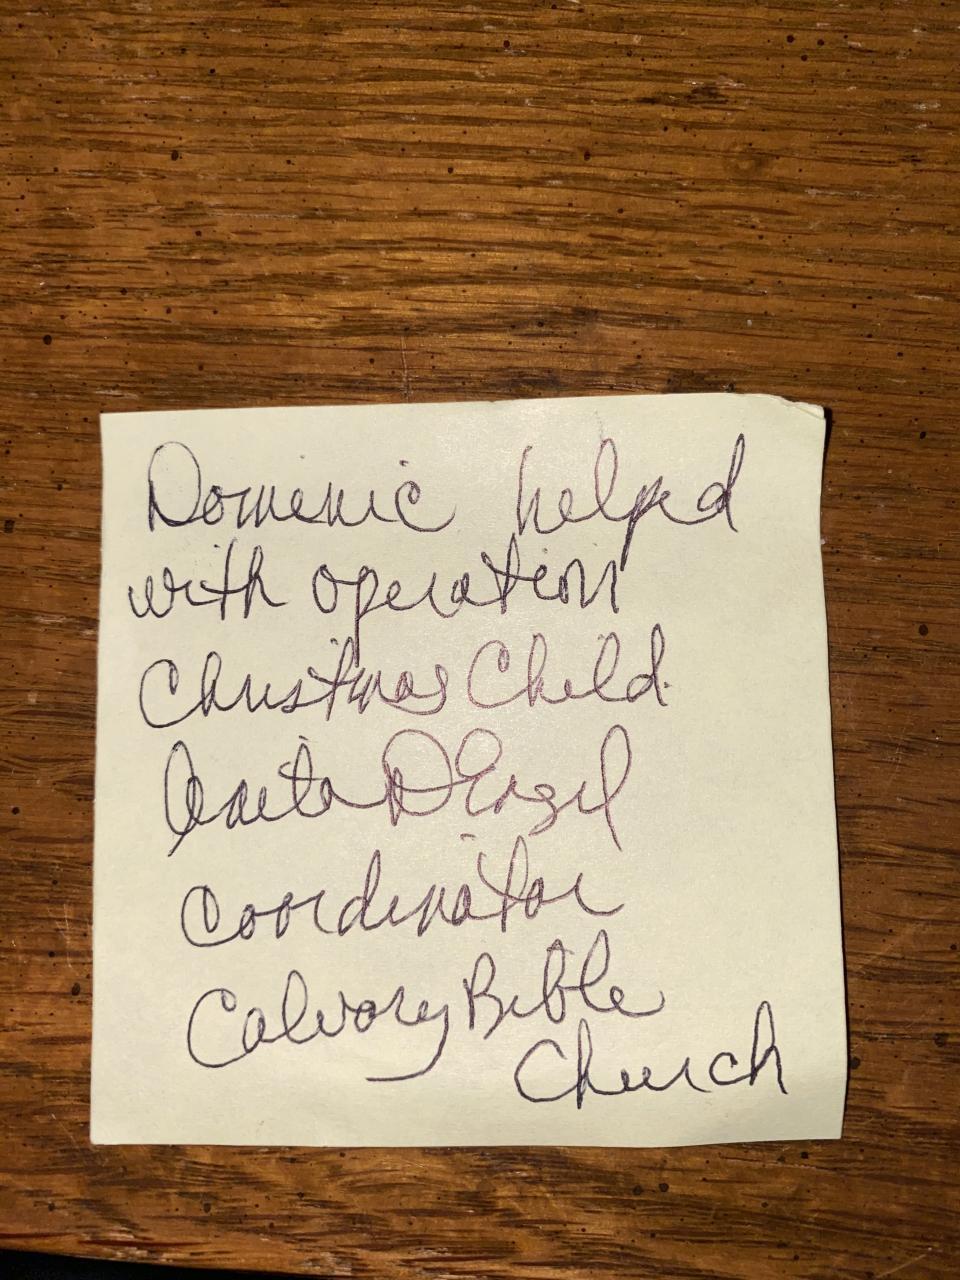 Domenic helped
with operation
Christmas Child.
Anita D Engel
Coordinator
Calvary Bible
Church